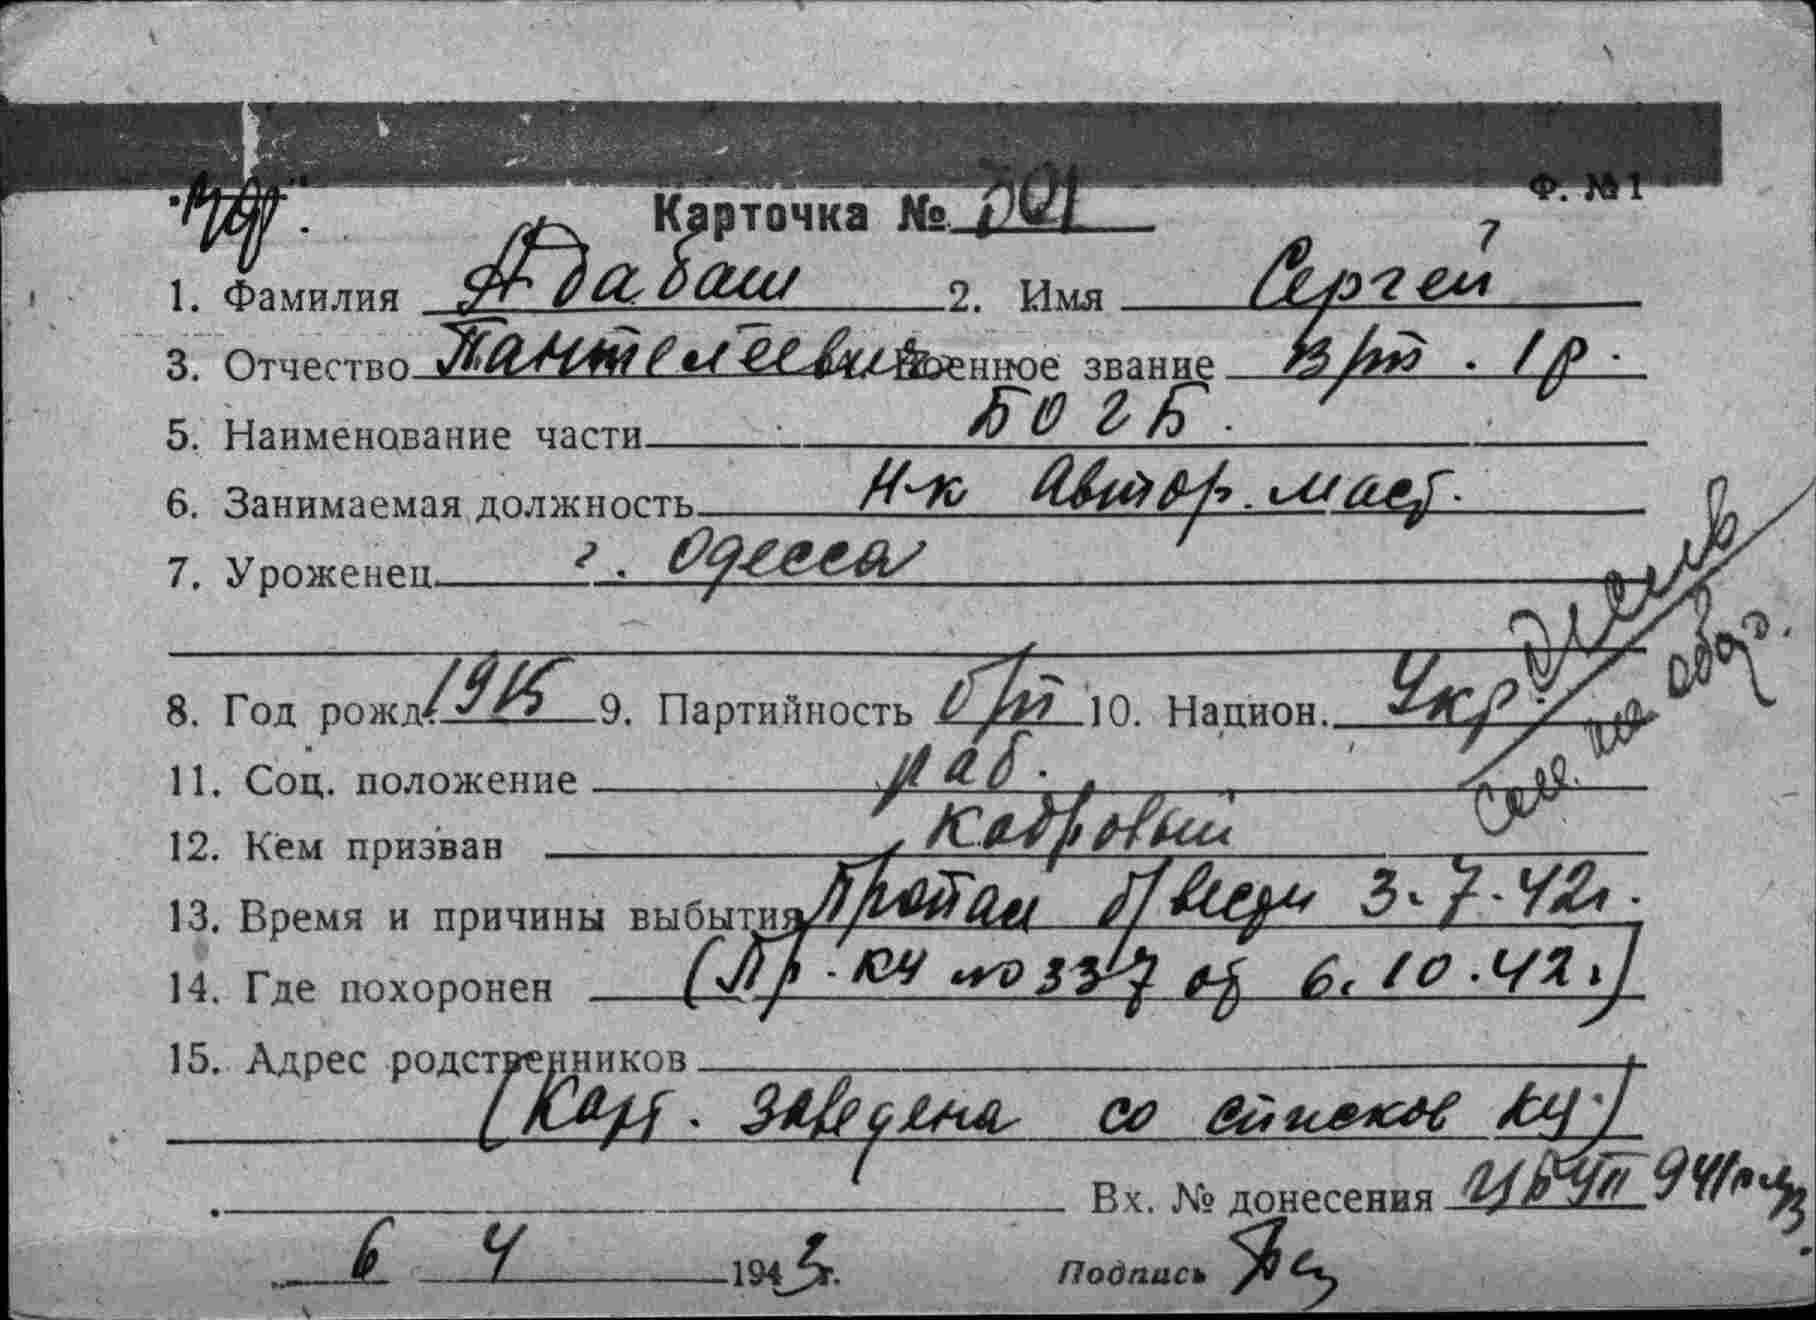 Ф. №1
Карточка № 501
1. Фамилия Адабаш 2. Имя Сергей
3. Отчество Пантелеевич Военное звание в/т. 1 р.
5. Наименование части БОГБ.
6. Занимаемая должность Н-к Автор. маст.
7. Уроженец г. Одесса
8. Год рожд. 1915 9. Партийность б/п 10. Национ. Укр
11. Соц. положение раб.
12. Кем призван Кадровый
13. Время и причины выбытия Пропал б/вести 3.7.42г.
14. Где похоронен (Пр. КУ №337 от 6.10.42.)
15. Адрес родственников
(Карт. заведена со списков КУ.)
Вх. № донесения 941
6 4 1943г. Подпись